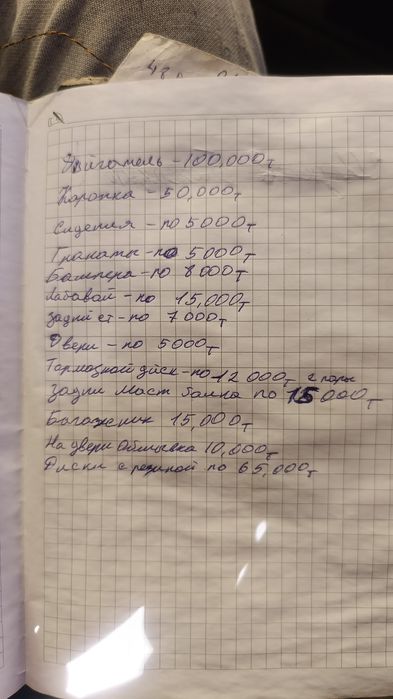 48
Двигатель - 100,000т
Коропка - 50,000т
Сидения - по 5000т
Гранаты - по 5000т
Бампера - по 8000т
Лабавой - по 15,000т
Задни ст - по 7000т
Двери - по 5000т
Тормозной диск - по 12 000т 2 пары
Задни мост балка по 15000т
Богажник 15,000т
На двери Обшывка 10,000т
Диски с резиной по 65,000т